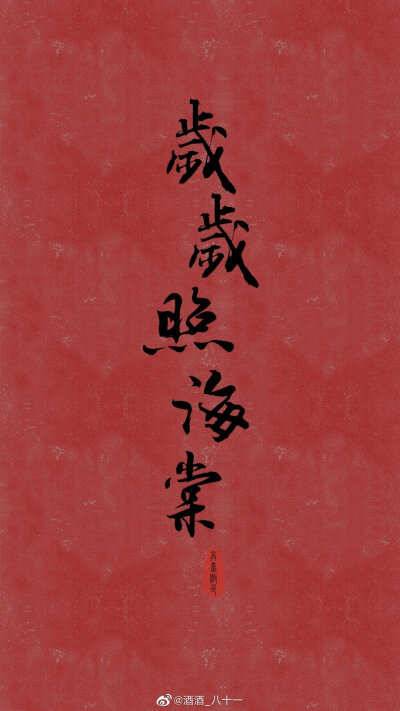 歲歲照海棠
@酒酒_八十一